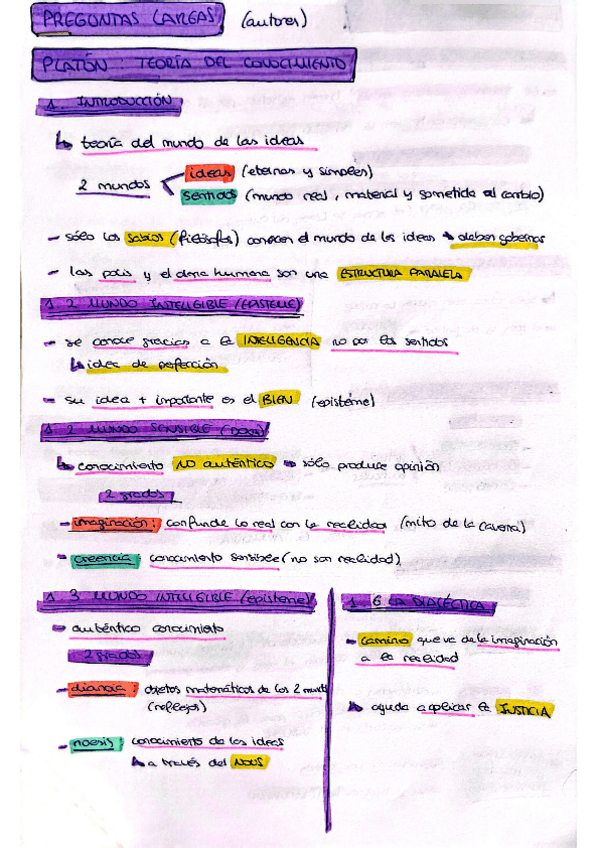 PREGUNTAS LARGAS (autores)
PLATÓN: TEORÍA DEL CONOCIMIENTO
1. INTRODUCCIÓN
↳ teoría del mundo de las ideas
2 mundos
ideas (eternas y simples)
sentidos (mundo real, material y sometida al cambio)
- sólo los sabios (filósofos) conocen el mundo de las ideas → deben gobernar
- las polis y el alma humana son una ESTRUCTURA PARALELA
1.2 MUNDO INTELIGIBLE (EPISTEME)
- se conoce gracias a la INTELIGENCIA no por los sentidos
↳ idea de perfección
- su idea + importante es el BIEN (epistéme)
1.2 MUNDO SENSIBLE (DOXA)
↳ conocimiento NO auténtico → sólo produce opinión
2 grados
- imaginación: confunde lo real con la realidad (mito de la caverna)
- creencia conocimiento sensible (no son realidad)
1.3 MUNDO INTELIGIBLE (episteme)
- auténtico conocimiento
2 grados
- dianoia: objetos matemáticos de los 2 mundos
(reflejos)
- noesis: conocimiento de las ideas
↳ a través del NOUS
1.6 LA DIALÉCTICA
- camino que va de la imaginación
a la realidad
↳ ayuda a aplicar la JUSTICIA